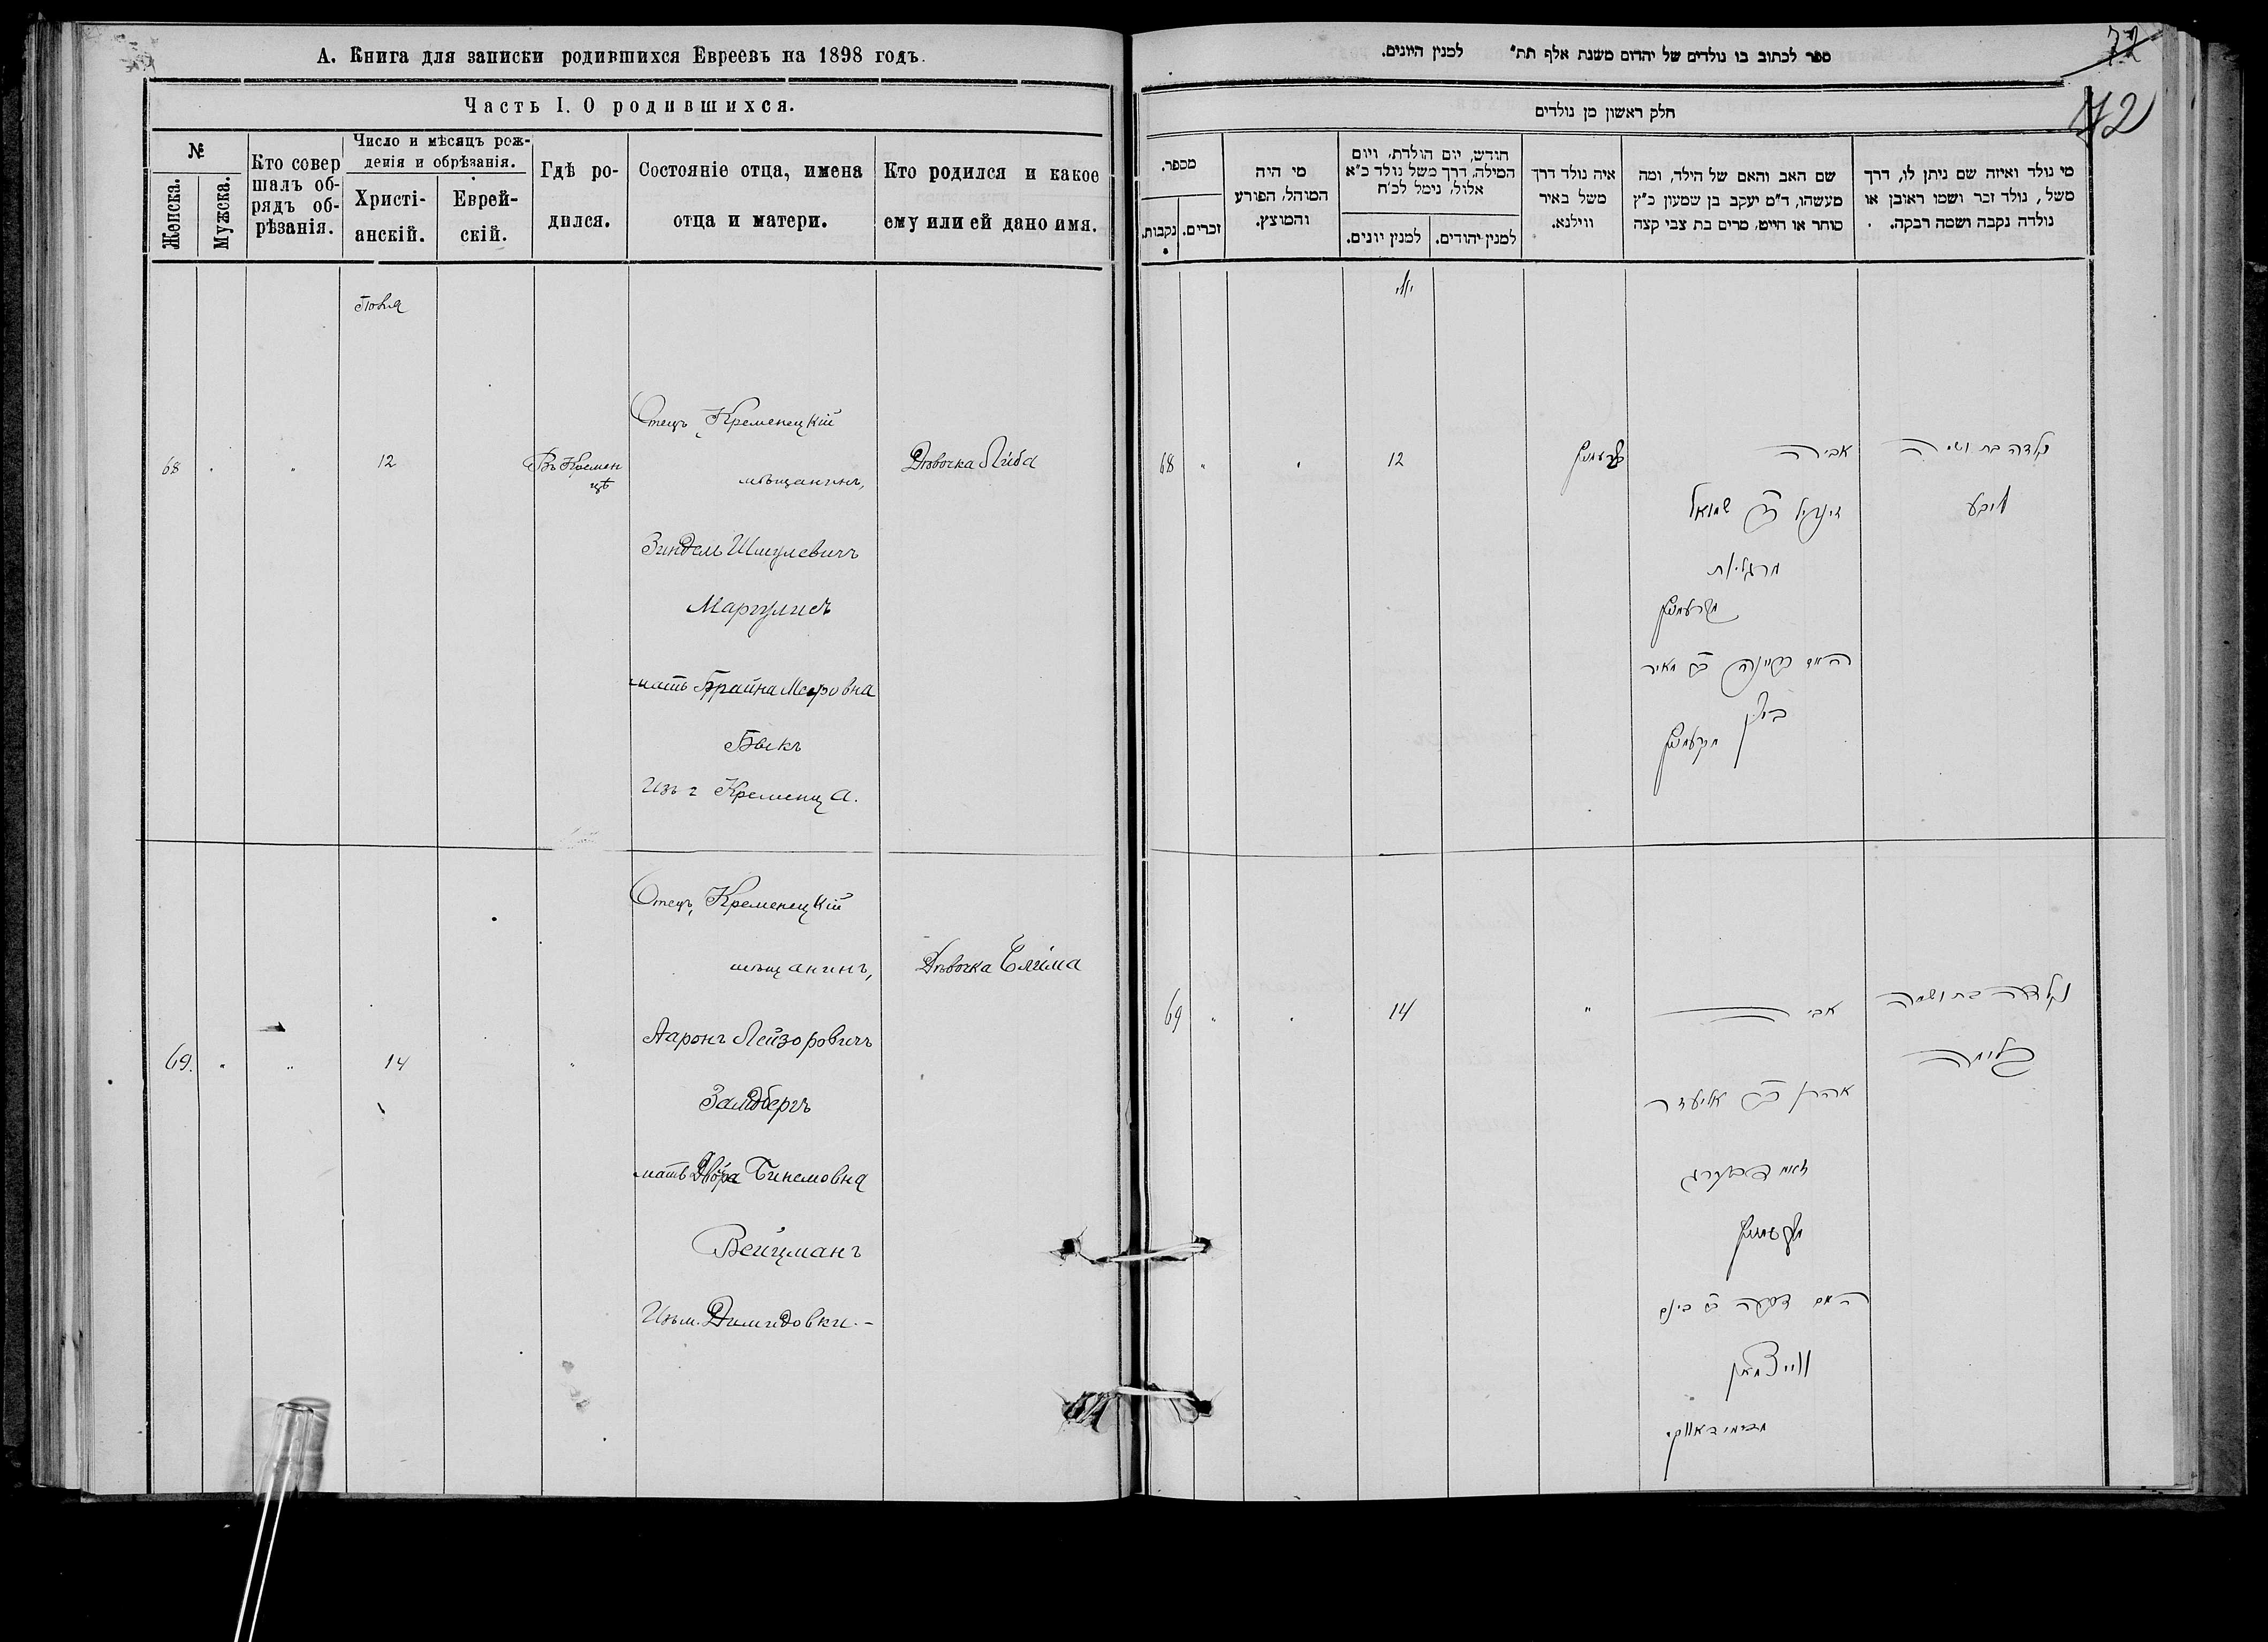 А. Книга для записки родившихся Евреевъ на 1898 годъ.
Часть I. О родившихся.
№
Женска.
Мужска.
Кто совер
шалъ об-
рядъ об-
рѣзанія.
Число и мѣсяцъ рож-
денія и обрѣзанія.
Христі-
анскій.
Еврей-
скій.
Гдѣ ро-
дился.
Состояніе отца, имена
отца и матери.
Кто родился и какое
ему или ей дано имя.
68
"
"
12
Въ Кремен
цѣ
Отецъ, Кременецкій
мѣщанинъ,
Зиндель Шмулевичъ
Маргулисъ
мать Брайна Меировна
Быкъ
Изъ г Кременца.
Дѣвочка Либа
69.
"
"
14
"
Отецъ, Кременецкій
мѣщанинъ,
Ааронъ Лейзоровичъ
Залдбергъ
мать Двойра Бинемовна
Вейцманъ
Изъ м. Димидовки.-
Дѣвочка Слима
ספר לכתוב בו נולדים של יהדום משנת אלף תת" למנין היונים.
72
72
חלק ראשון מן נולדים
מספר.
נקבות.
זכרים.
מי היה
המוהל, הפורע
והמוצץ.
חודש, יום הולדת, ויום
המילה, דרך משל נולד כ"א
אלול, נימל לכ"ח
למנין יונים.
למנין יהודים.
איה נולד דרך
משל באיר
ווילנא.
שם האב והאם של הילד, ומה
מעשהו, ד"מ יעקב בן שמעון כ"ץ
סוחר או חייט, מרים בת צבי קצה
מי נולד ואיזה שם ניתן לו, דרך
משל, נולד זכר ושמו ראובן או
נולדה נקבה ושמה רבקה.
68
"
"
12
אביה
שמואל
מרגליות
מאיר
ליבע
69
"
"
14
"
אבי
אהרן אליעזר
ווייצמאן
נולדה בת ושמה